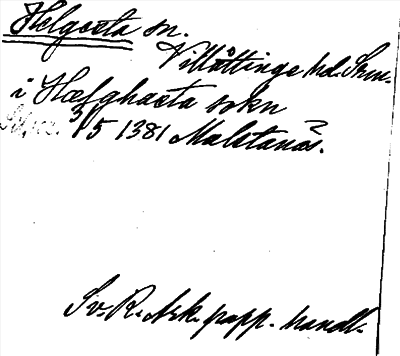 Helgesta sn.
Villåttinge hd. Srm.
i Hælghæsta sokn
3/5 1381 Malstanäs.
Sv. R. Ark. papp. handl.